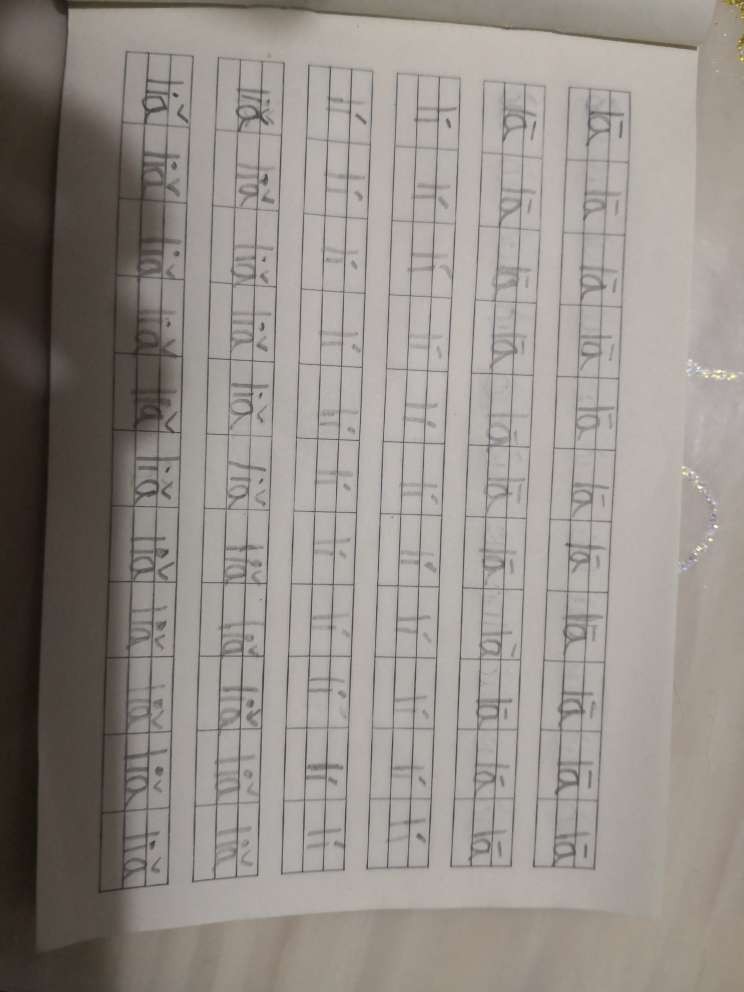 lā lā lā lā lā lā lā lā lā lā lā
lā lā lā lā lā lā lā lā lā lā lā
lí lí lí lí lí lí lí lí lí lí lí
lí lí lí lí lí lí lí lí lí lí lí
liǎ liǎ liǎ liǎ liǎ liǎ liǎ liǎ liǎ liǎ liǎ
liǎ liǎ liǎ liǎ liǎ liǎ liǎ liǎ liǎ liǎ liǎ